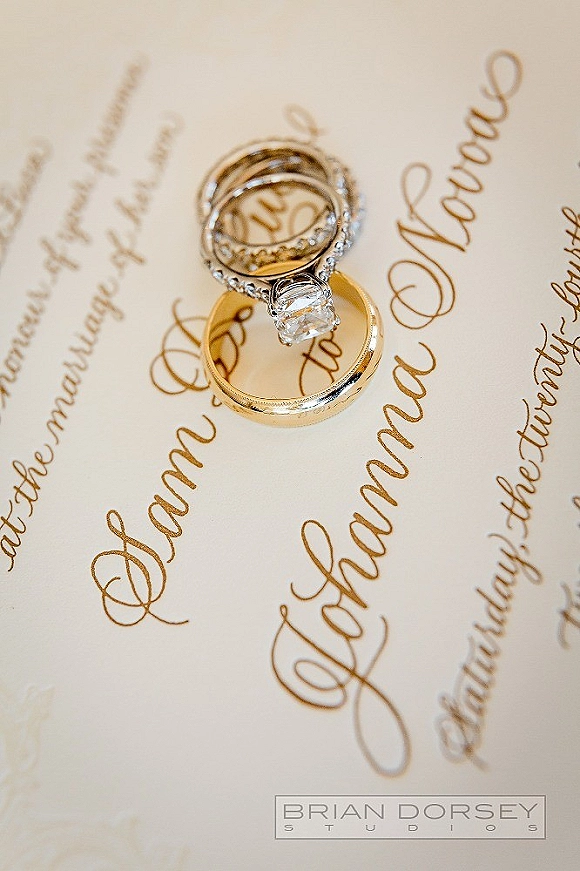 honour of your presence
at the marriage of her son
Sam
to
Johanna Novoa
Saturday, the twenty-fourth
BRIAN DORSEY
STUDIOS